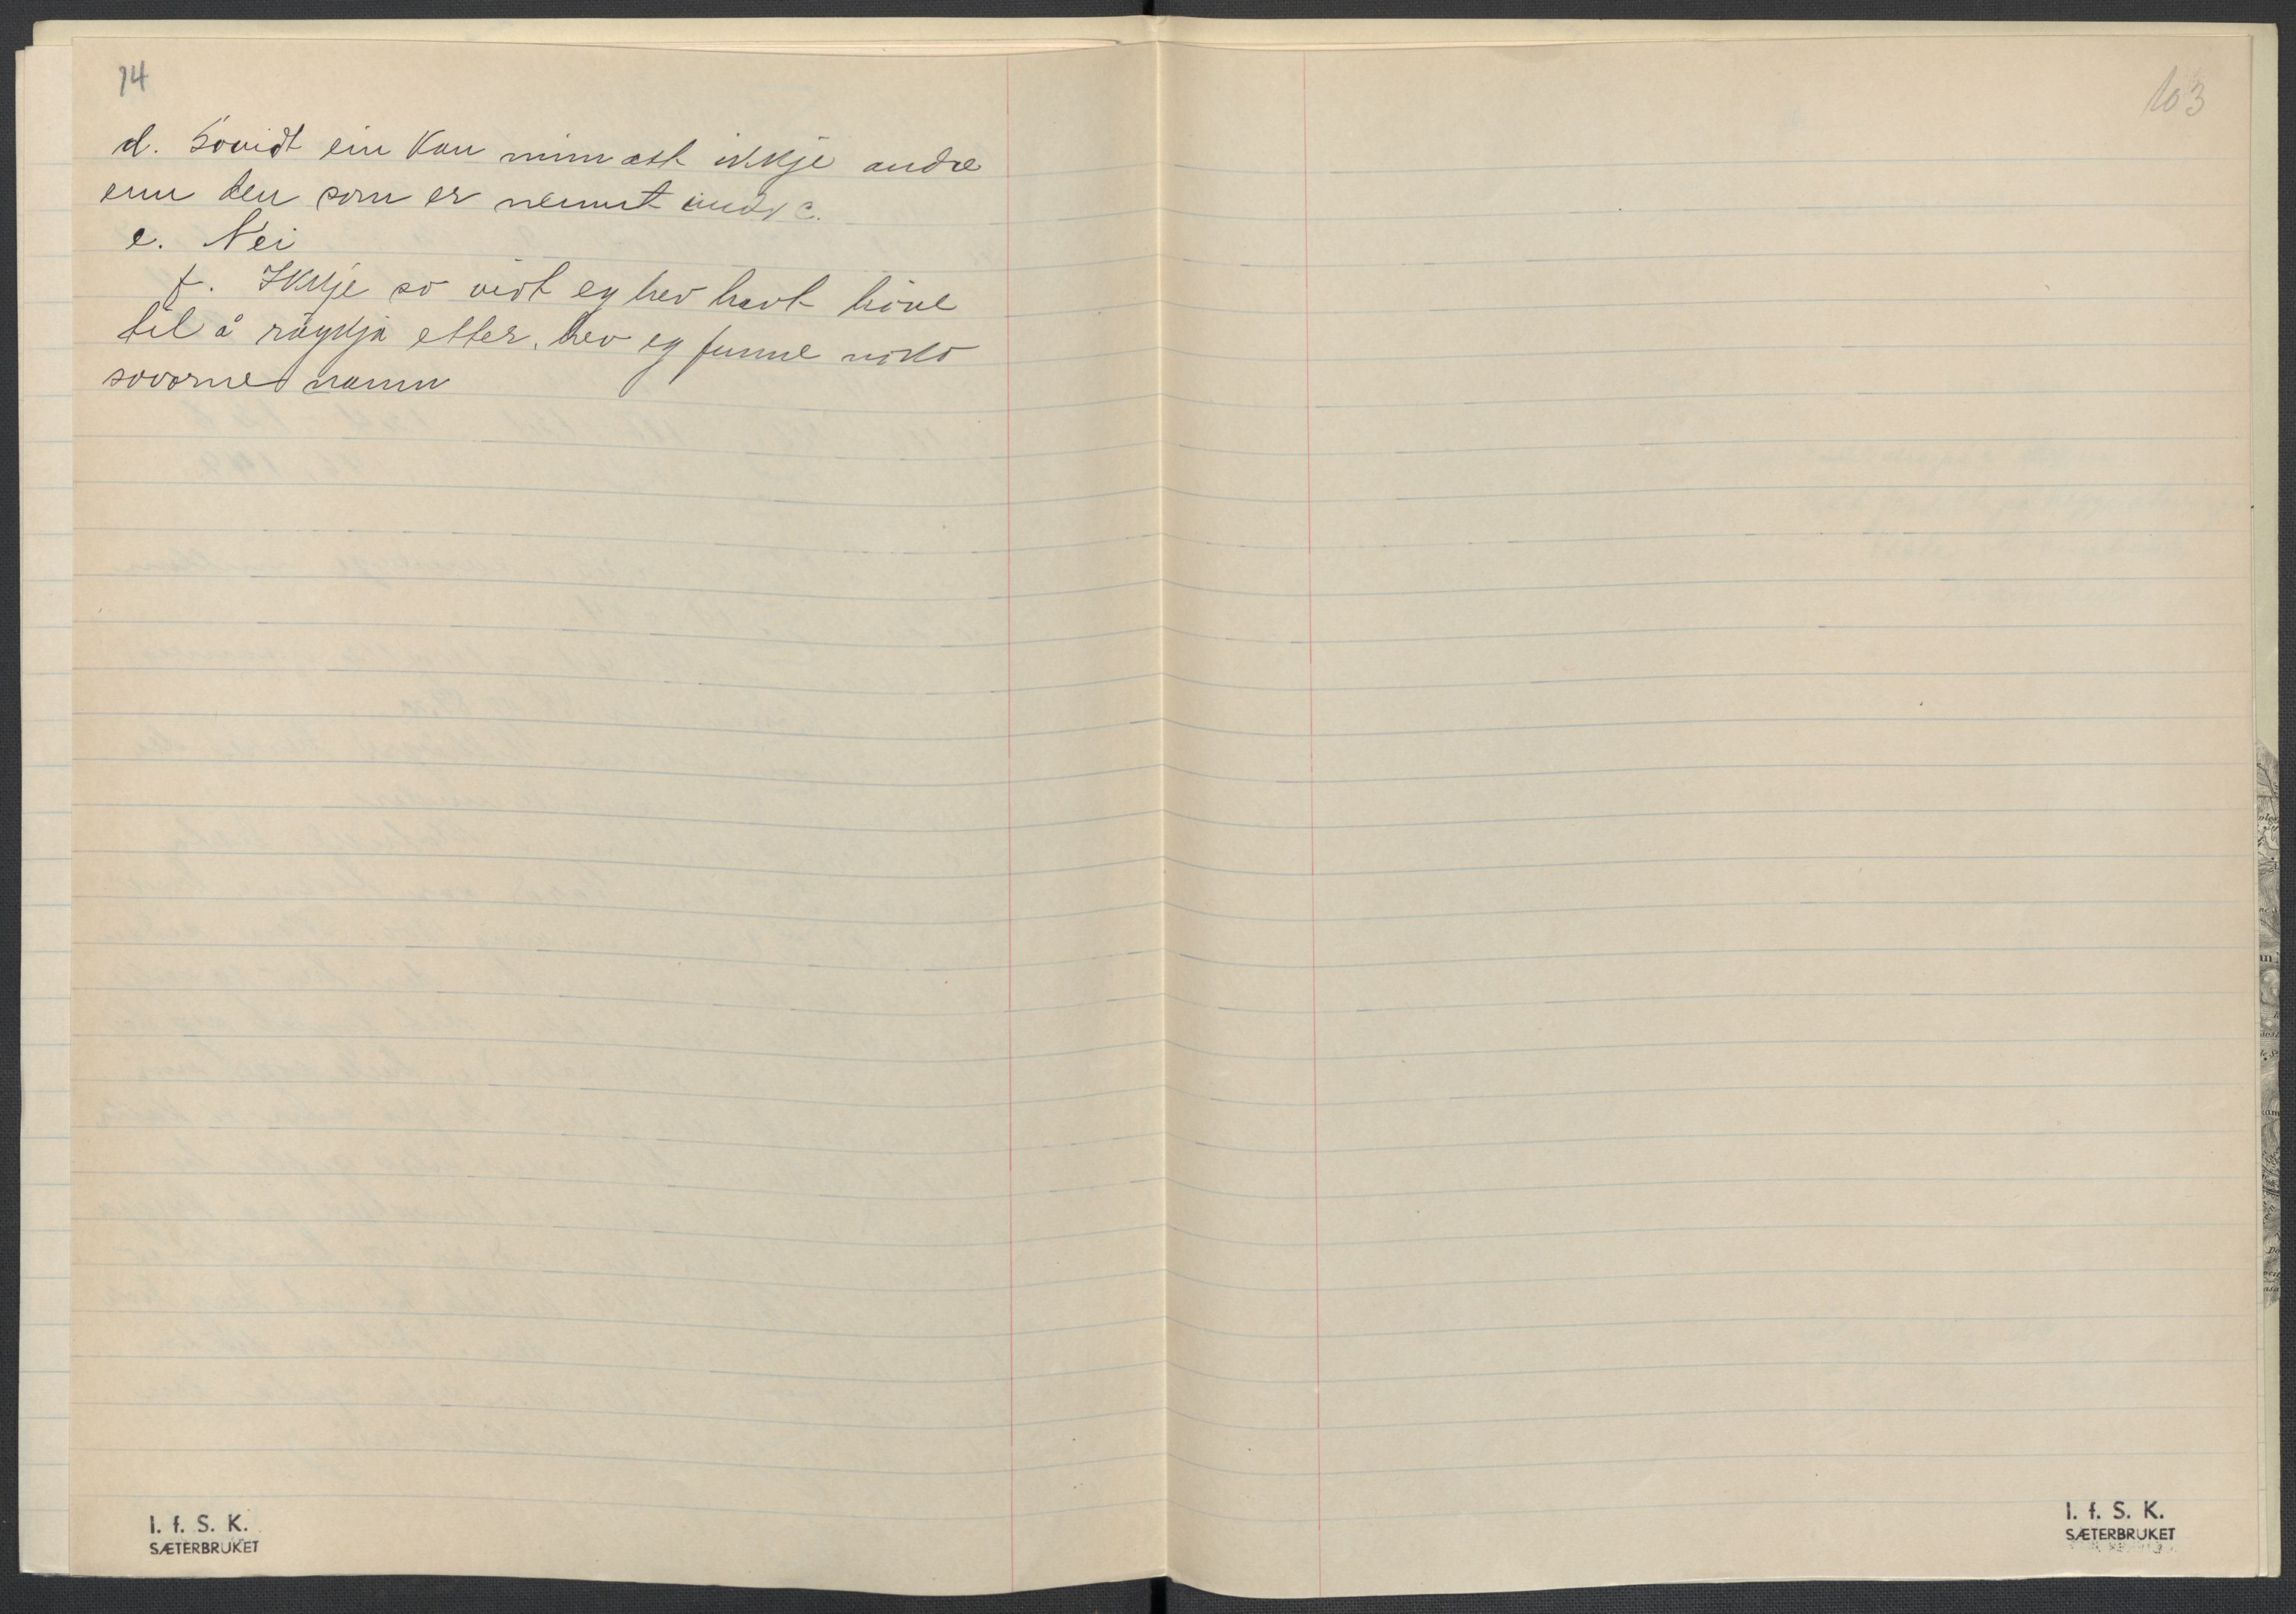 14
d. Sovidt ein kan minnast ikkje andre
enn den som er nemnt und c.
e. Nei
f. Ikkje so vidt eg hev havt høve
til å røykja etter, hev eg funne noko
sovorne namn
I. f. S. K.
SÆTERBRUKET
103
I. f. S. K.
SÆTERBRUKET